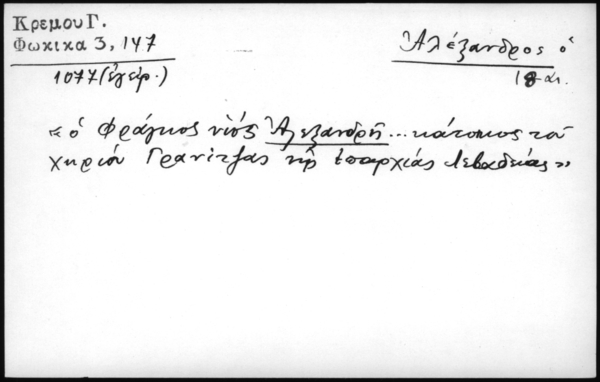 Κρεμου Γ.
Φωκικα 3, 147
1077 (ἔγγρ.)
Ἀλέξανδρος ὁ
18 αι.
«ὁ Φράγκος υἱὸς Ἀλεξανδρῆ... κάτοικος τοῦ
χωρίου Γρανίτζας τῆς ἐπαρχίας Λεβαδείας»